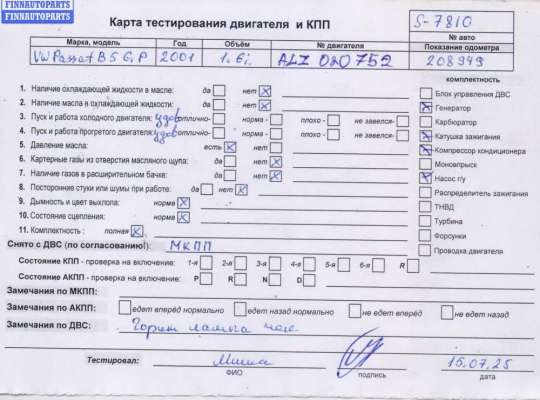 FINNAUTOPARTS
FINNAUTOPARTS
Карта тестирования двигателя и КПП
S-7810
№ авто
Марка, модель Год Объём № двигателя Показание одометра
VW Passat B5 G.P 2001 1.6i ALZ 020752 208949
комплектность
1. Наличие охлаждающей жидкости в масле: да нет
2. Наличие масла в охлаждающей жидкости: да нет
3. Пуск и работа холодного двигателя: удов отлично- норма - плохо - не завелся-
4. Пуск и работа прогретого двигателя: удов отлично- норма - плохо - не завелся-
5. Давление масла: есть нет
6. Картерные газы из отверстия масляного щупа: да нет
7. Наличие газов в расширительном бачке: да нет
8. Посторонние стуки или шумы при работе: да нет
9. Дымность и цвет выхлопа: норма
10. Состояние сцепления: норма
11. Комплектность: полная
Блок управления ДВС
Генератор
Карбюратор
Катушка зажигания
Компрессор кондиционера
Моновпрыск
Насос г/у
Распределитель зажигания
ТНВД
Турбина
Форсунки
Проводка двигателя
Снято с ДВС (по согласованию!): МКПП
Состояние КПП - проверка на включение: 1-я 2-я 3-я 4-я 5-я 6-я R
Состояние АКПП - проверка на включение: P R N D
Замечания по МКПП:
Замечания по АКПП: едет вперёд нормально едет назад нормально не едет вперёд не едет назад
Замечания по ДВС: Горит лампа чек
Тестировал: Миша 15.07.25
ФИО подпись дата